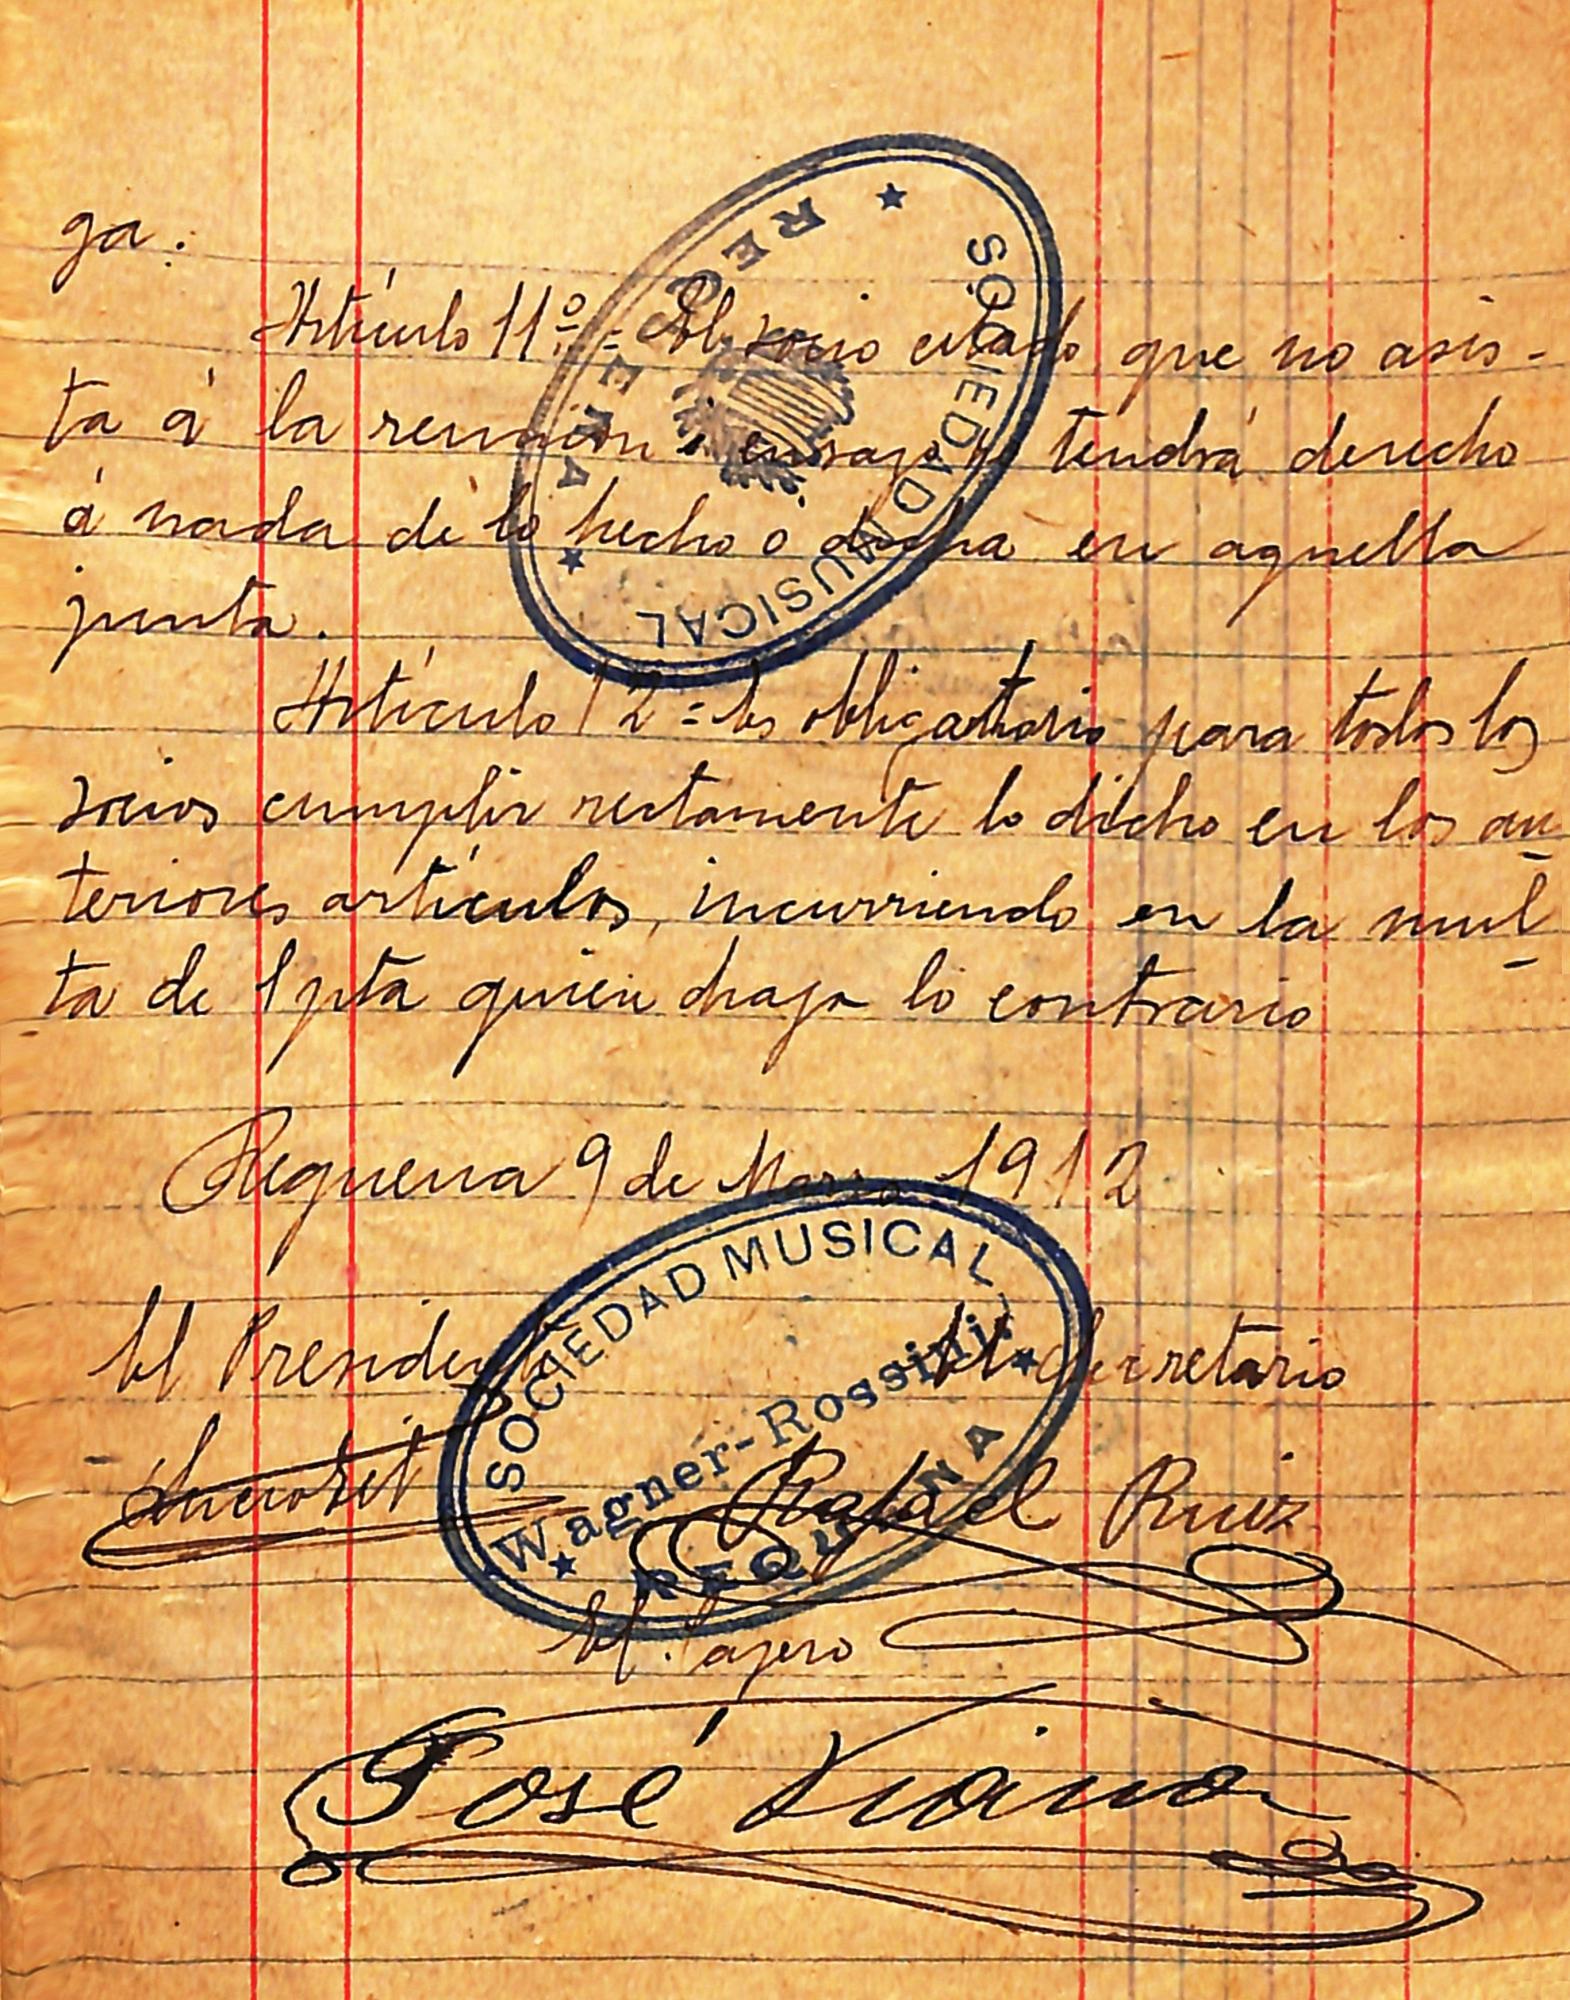 ga.
Artículo 11º = El socio citado que no asis-
ta á la reunion ó ensayo no tendrá derecho
á nada de lo hecho ó dicha en aquella
junta.
Artículo 12 = Es obligatorio para todos los
socios cumplir rectamente lo dicho en los an-
teriores artículos, incurriendo en la mul-
ta de 1 pta quien haga lo contrario
Requena 9 de Marzo 1912
El Presidente El Secretario
Rafael Ruiz
El Cajero
José Viana
SOCIEDAD MUSICAL
REQUENA
SOCIEDAD MUSICAL
Wagner-Rossini
REQUENA